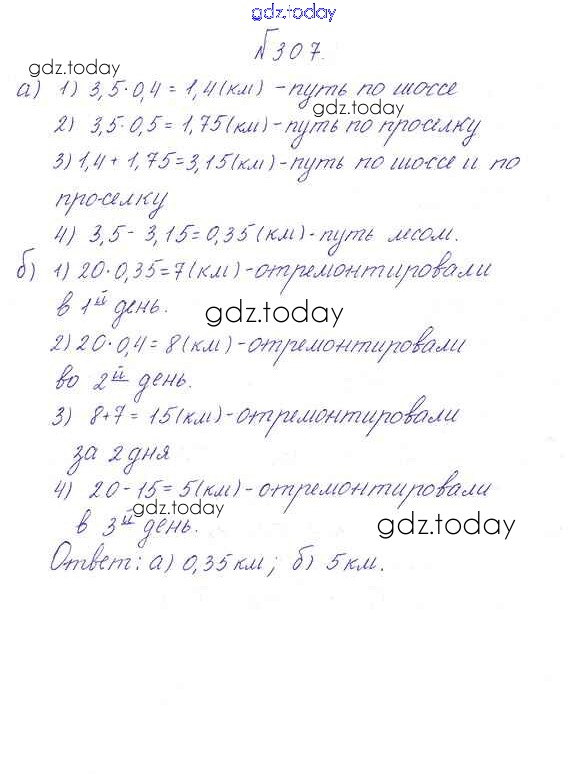 gdz.today
№307.
gdz.today
а) 1) 3,5·0,4=1,4(км) -путь по шоссе
gdz.today
2) 3,5·0,5=1,75(км)-путь по проселку
3) 1,4+1,75=3,15(км)-путь по шоссе и по
проселку
4) 3,5-3,15=0,35(км)-путь лесом.
б) 1) 20·0,35=7(км)-отремонтировали
в 1й день.
gdz.today
2) 20·0,4=8(км)-отремонтировали
во 2й день.
3) 8+7=15(км)-отремонтировали
за 2 дня
4) 20-15=5(км)-отремонтировали
gdz.today
в 3й день.
gdz.today
Ответ: а) 0,35км; б) 5км.